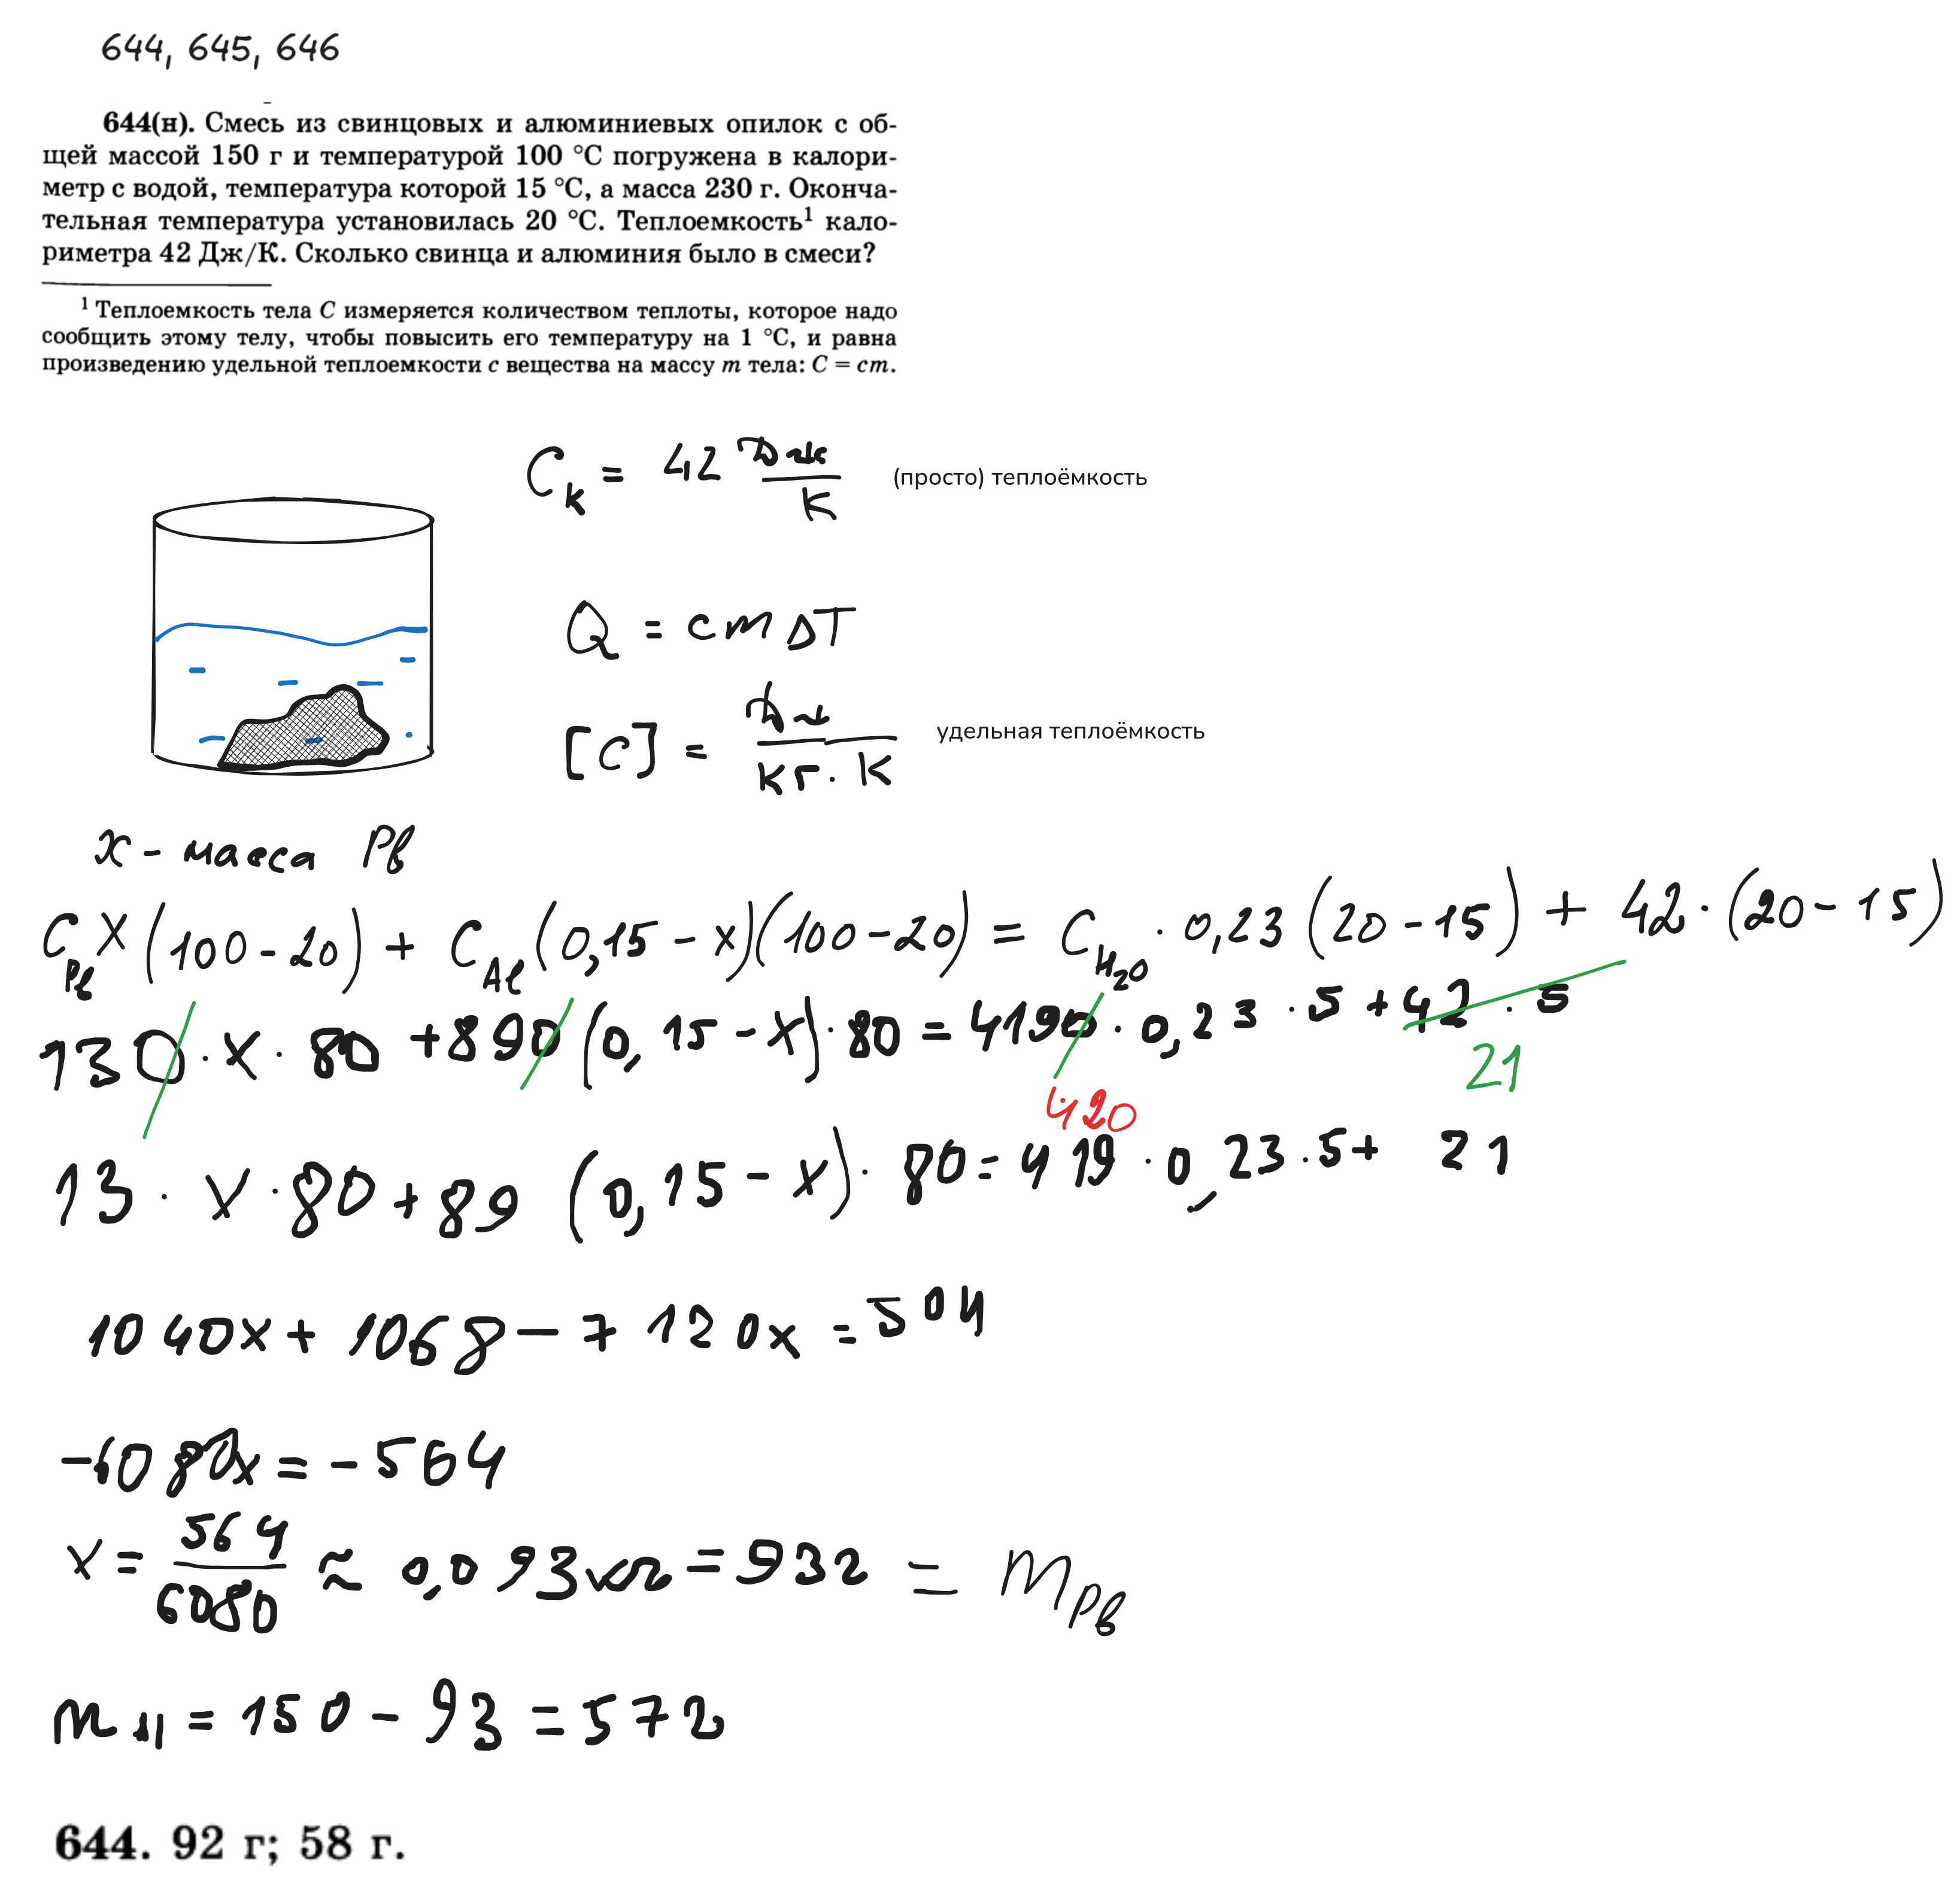 644, 645, 646
644(н). Смесь из свинцовых и алюминиевых опилок с об-
щей массой 150 г и температурой 100 °С погружена в калори-
метр с водой, температура которой 15 °С, а масса 230 г. Оконча-
тельная температура установилась 20 °С. Теплоемкость¹ кало-
риметра 42 Дж/К. Сколько свинца и алюминия было в смеси?
¹ Теплоемкость тела C измеряется количеством теплоты, которое надо
сообщить этому телу, чтобы повысить его температуру на 1 °С, и равна
произведению удельной теплоемкости c вещества на массу m тела: C = cm.
C_K = 42 Дж/К (просто) теплоёмкость
Q = cmΔT
[C] = Дж/кг·К удельная теплоёмкость
x - масса Pb
C_Pb X (100-20) + C_Al (0,15 - x)(100-20) = C_H₂O · 0,23 (20-15) + 42 · (20-15)
130 · x · 80 + 890 (0,15 - x) · 80 = 4190 · 0,23 · 5 + 42 · 5
21
420
13 · x · 80 + 89 (0,15 - x) · 80 = 419 · 0,23 · 5 + 21
1040x + 1068 - 7120x = 504
-6080x = -564
x = 564/6080 ≈ 0,093кг = 93г = m_Pb
m_Al = 150 - 93 = 57г
644. 92 г; 58 г.